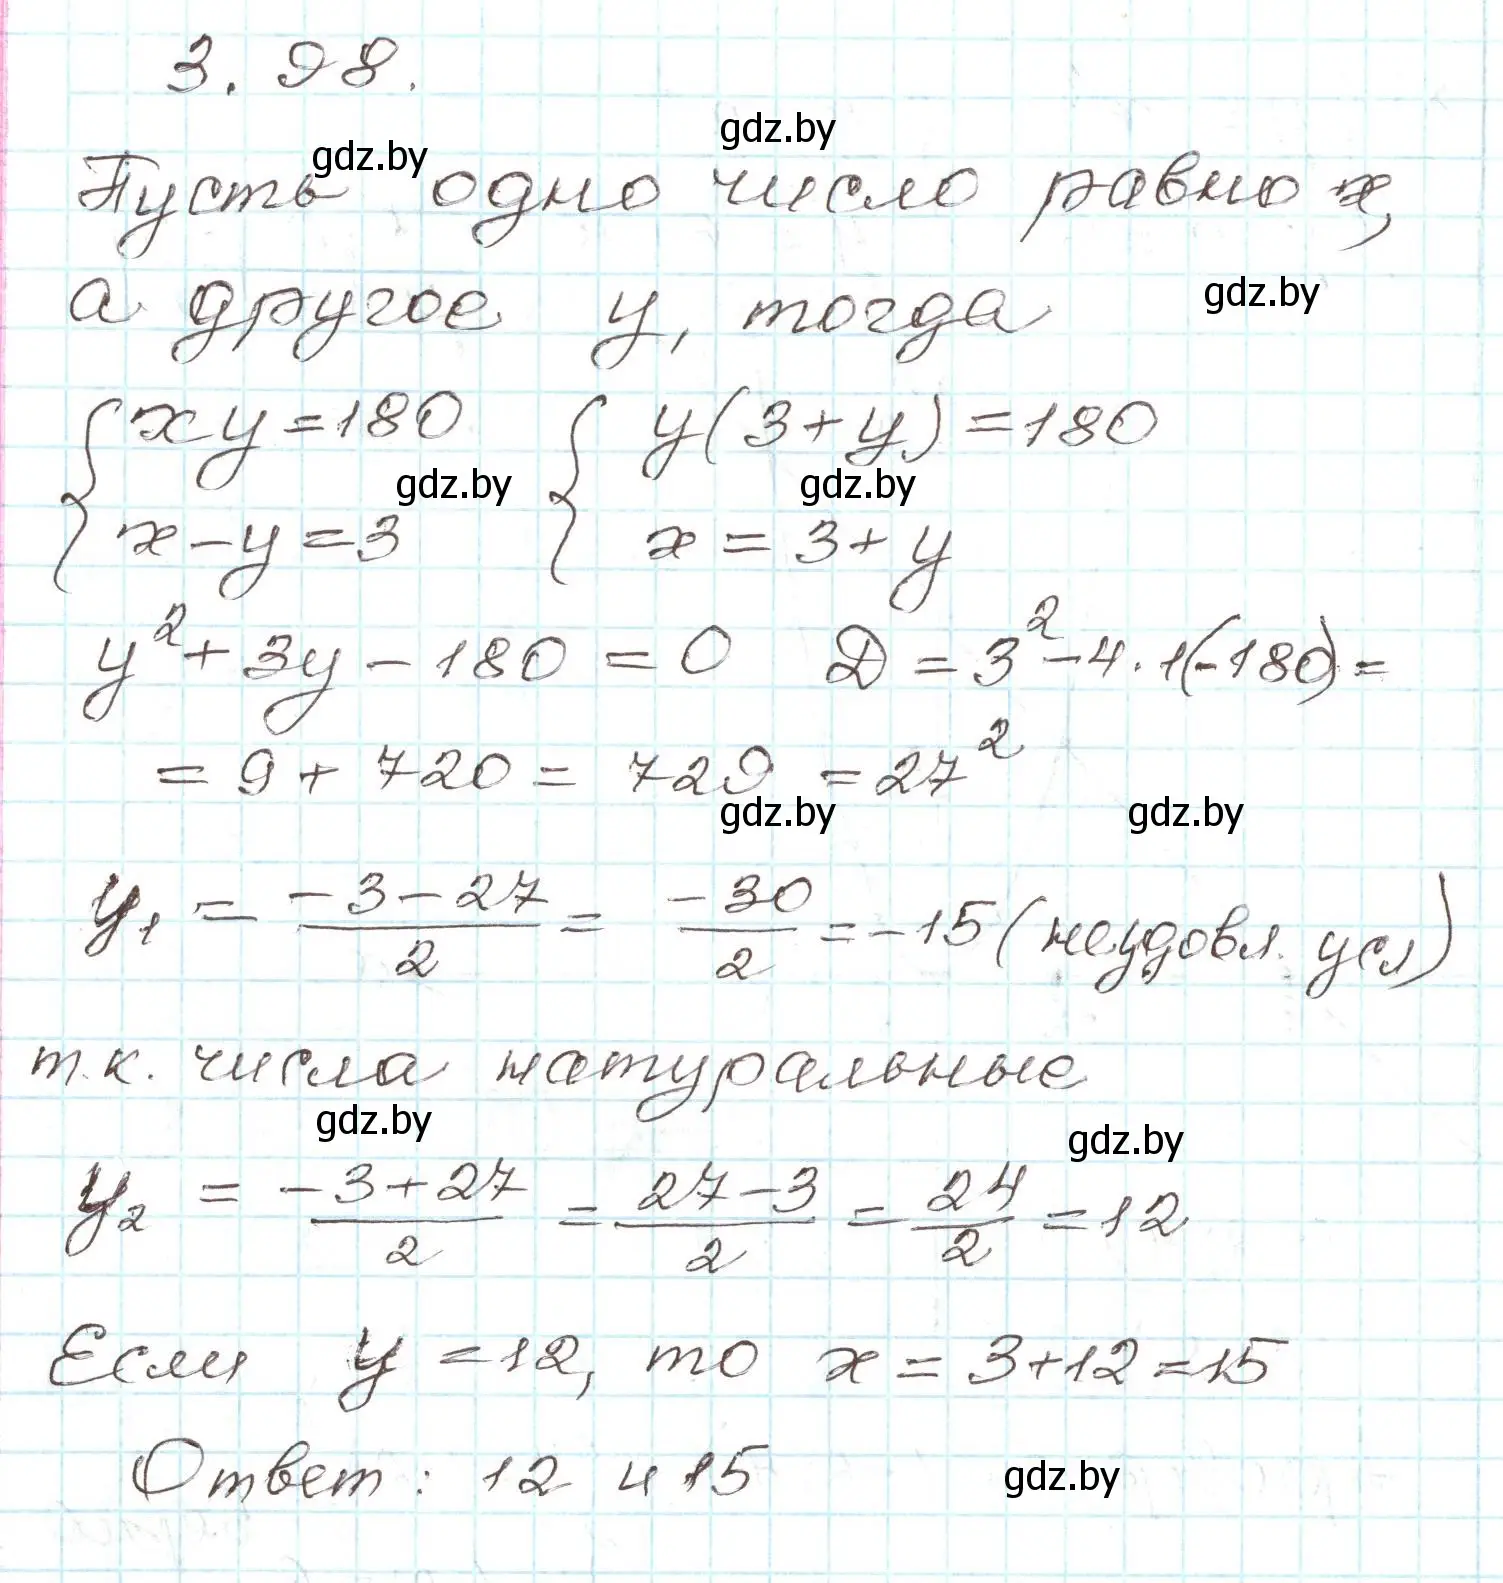 3.98.
gdz.by
gdz.by
Пусть одно число равно x,
gdz.by
а другое y, тогда
{ xy = 180 { y(3+y) = 180
gdz.by gdz.by
x - y = 3 x = 3 + y
y² + 3y - 180 = 0 D = 3² - 4 · 1(-180) =
= 9 + 720 = 729 = 27²
gdz.by gdz.by
y₁ = (-3-27)/2 = -30/2 = -15 (неудовл. усл)
т.к. числа натуральные
gdz.by gdz.by
y₂ = (-3+27)/2 = (27-3)/2 = 24/2 = 12
Если y = 12, то x = 3+12 = 15
Ответ: 12 и 15
gdz.by